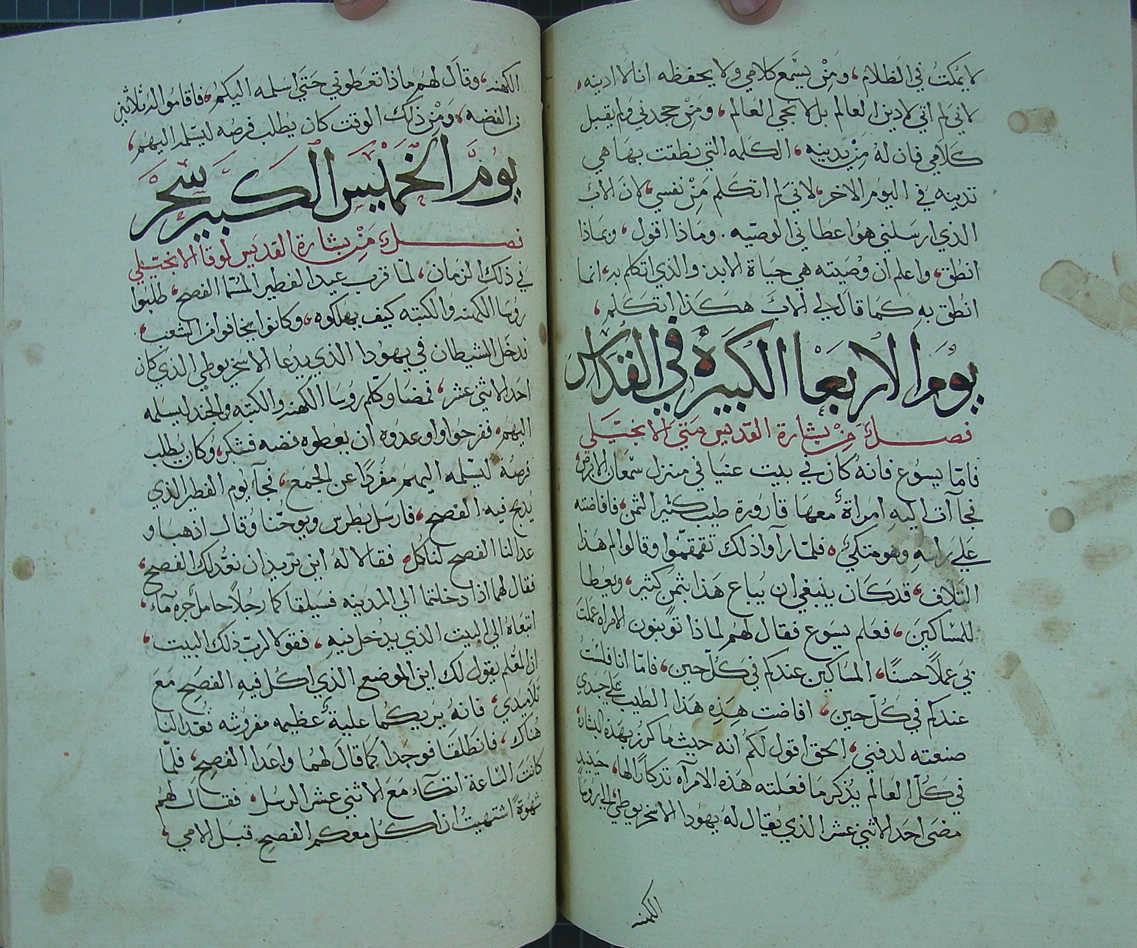 لا يمكث في الظلام، ومن يسمع كلامي ولا يحفظه انا لا ادينه،
لاني لم اتي لادين العالم بل لاحيي العالم، ومن جحدني ولم يقبل
كلامي فان له من يدينه، الكلمه التي نطقت بها هي
تدينه في اليوم الاخر، لاني لم اتكلم من نفسي، لان الاب
الذي ارسلني هو اعطاني الوصيه. وماذا اقول، وبماذا
انطق، واعلم ان وصيته هي حياة الابد، والذي اتكلم به، انما
انطق به كما قال لي الاب هكذا اتكلم،
يوم الاربعا الكبيره في القداس
فصل من بشارة القديس متى الانجيلي
فامّا يسوع فانه كان في بيت عنيا في منزل سمعان الابرص
فجآت اليه امراة معها قارورة طيب كثير الثمن، فافاضته
علي راسه وهو متكيء، فلمّا راوا ذلك تقمقموا وقالوا لم هذا
التلاف، قد كان ينبغي ان يباع هذا بثمن كثير، ويعطا
للمساكين، فعلم يسوع فقال لهم لماذا توبنون الامراه عملت
بي عملاً حسنًا، المساكين عندكم في كل حين، فامّا انا فلست
عندكم في كل حين، افاضت هذه هذا الطيب علي جسدي
صنعته لدفني، الحق اقول لكم انه حيث ما كرز بهذه البشاره
في كل العالم يذكر ما فعلته هذه الامرآه تذكارًا لها، حينيد
مضى احد الاثني عشر الذي يقال له يهودا الاسخريوطي الي روسا
الكهنه
الكهنه، وقال لهم ماذا تعطوني حتى اسلمه اليكم، فاقاموا له ثلاثين
من الفضه، ومن ذلك الوقت كان يطلب فرصه ليسلمه اليهم،
يوم الخميس الكبير سحر
فصل من بشارة القديس لوقا الانجيلي
في ذلك الزمان، لمّا قرب عيد الفطير المسمّا الفصح، طلبوا
روسا الكهنه والكتبه كيف يهلكوه، وكانوا يخافوا من الشعب،
فدخل الشيطان في يهودا الذي يدعا الاسخريوطي الذي كان
احد الاثني عشر، فمضا وكلم روسا الكهنه والكتبه والجند ليسلمه
اليهم، ففرحوا واوعدوه ان يعطوه فضه فشكر، وكان يطلب
فرصه ليسلمه اليهم مفردًا عن الجمع، فجآ يوم الفطير الذي
يذبح فيه الفصح، فارسل بطرس ويوحنا وقال اذهبا و
عدا لنا الفصح لناكل، فقالا له اين تريد ان نعد لك الفصح،
فقال لهما اذا دخلتما الي المدينه فسيلقاكما رجلاً حامل جرة مآء،
اتبعاه الي البيت الذي يدخل فيه، فقولا لرب ذلك البيت،
ان المعلم يقول لك اين الموضع الذي اكل فيه الفصح مع
تلاميذي، فانه يريكما علية عظيمه مفروشه فعدا لنا
هناك، فانطلقا فوجدا كما قال لهما واعدا الفصح، فلمّا
كانت الساعة اتكاء مع الاثني عشر الرسل، فقال لهم
شهوة اشتهيت ان اكل معكم الفصح قبل الامي،